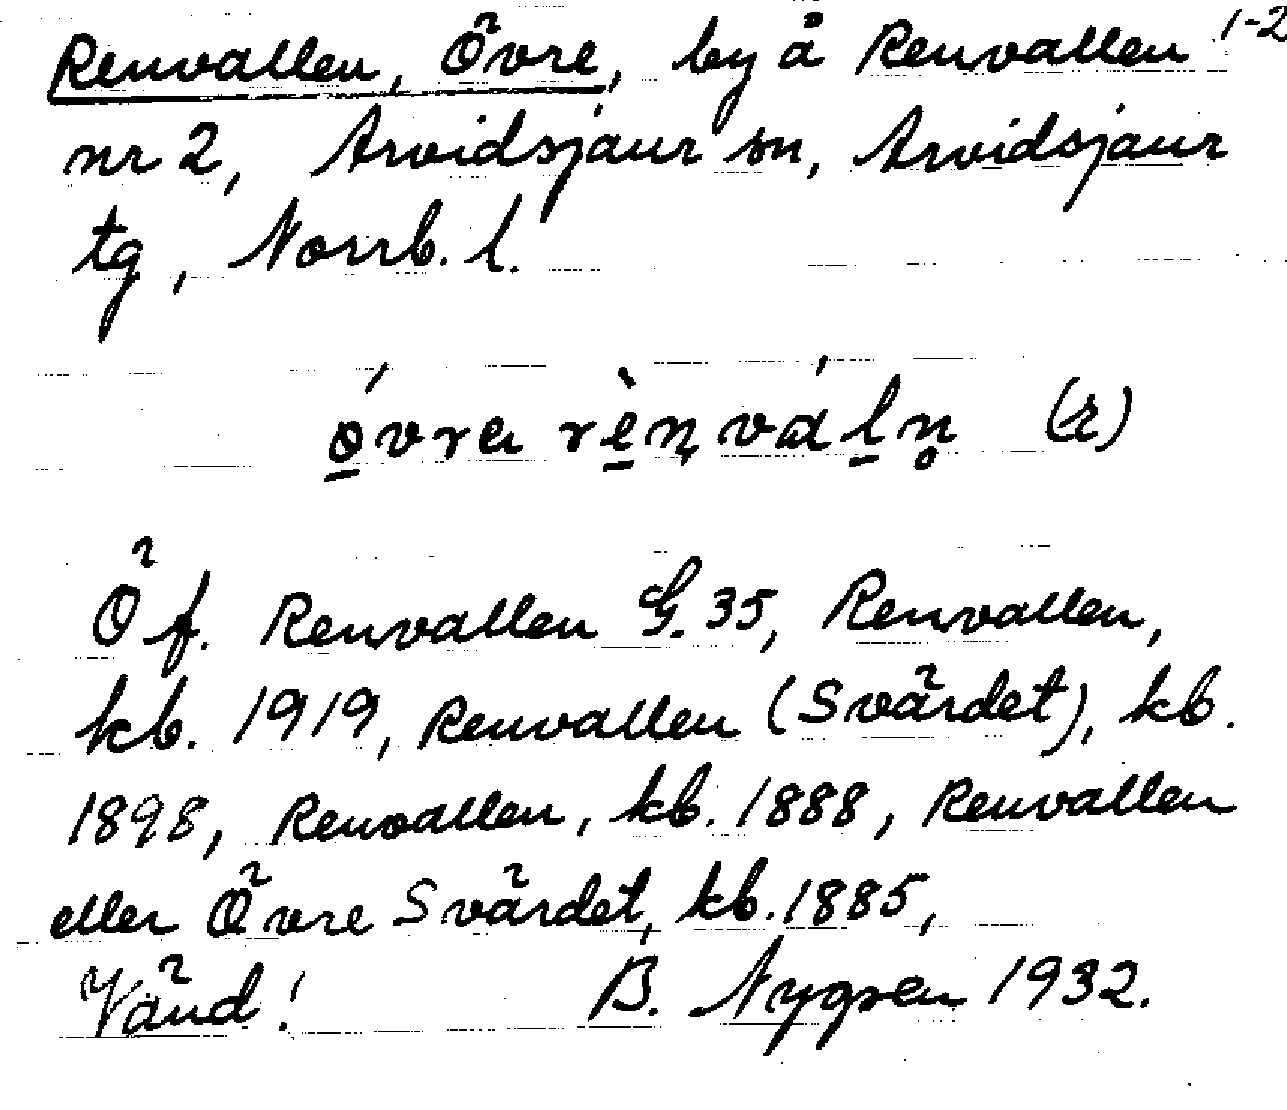 Renvallen, Övre, by å Renvallen 1-2
nr 2, Arvidsjaur sn, Arvidsjaur
tg, Norrb. l.
(r)
Öf. Renvallen G. 35, Renvallen,
kb. 1919, Renvallen (Svärdet), kb.
1898, Renvallen, kb. 1888, Renvallen
eller Övre Svärdet, kb. 1885,
Vänd! B. Nygren 1932.